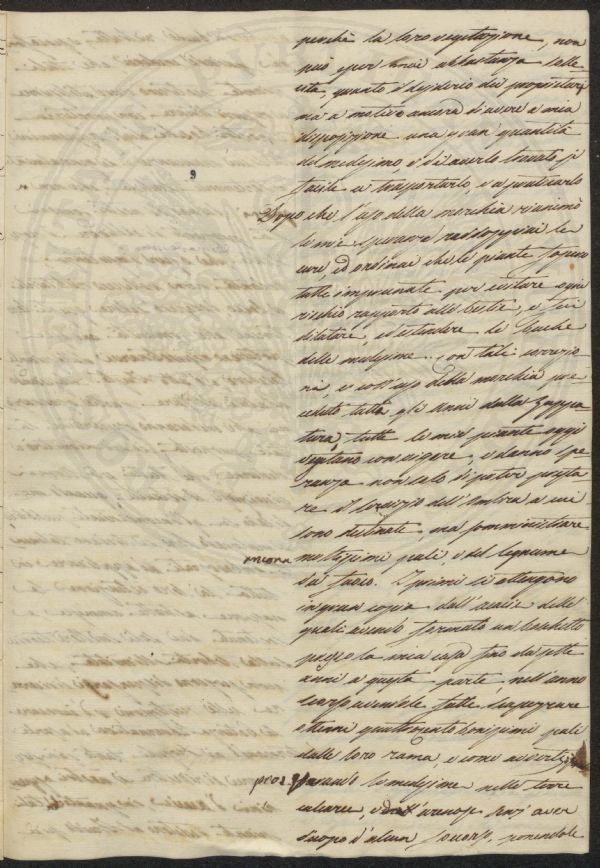 9
perchè la loro vegetazione, non
può esser mai abbastanza solle
cita, quanto il desiderio dei proprietarj
ma a motivo ancora di avere a mia
disposizione una gran quantità
del medesimo, e di averlo trovato sì
facile a trasportarlo, e a praticarlo
Dopo che l'uso della morchia rianimò
le mie speranze raddoppiai le
cure, ed ordinai che le piante fossero
tutte imprunate per evitare ogni
rischio rapporto alle bestie, e feci
dilatare, ed estendere le buche
delle medesime. Con tali correzio
ni, e coll'uso della morchia pre
ceduto tutti gli anni dalla zappa
tura, tutte le mie piante oggi
vegetano con vigore, e danno spe
ranza non solo di poter presta
re il servizio dell'ombra a cui
sono destinate, ma somministrare
ancora
moltissimi pali, e del legname
da fuoco. I primi si ottengono
in gran copia dall'acacie delle
quali avendo formato un boschetto
presso la mia casa fino da sette
anni a questa parte, nell'anno
scorso avendole fatte scapezzare
ottenni quattrocento bonissimi pali
dalle loro rama, e come avverti
prosperando le medesime nelle terre
calcaree, ed arenose senz'aver
d'uopo d'alcun soccorso, ponendole